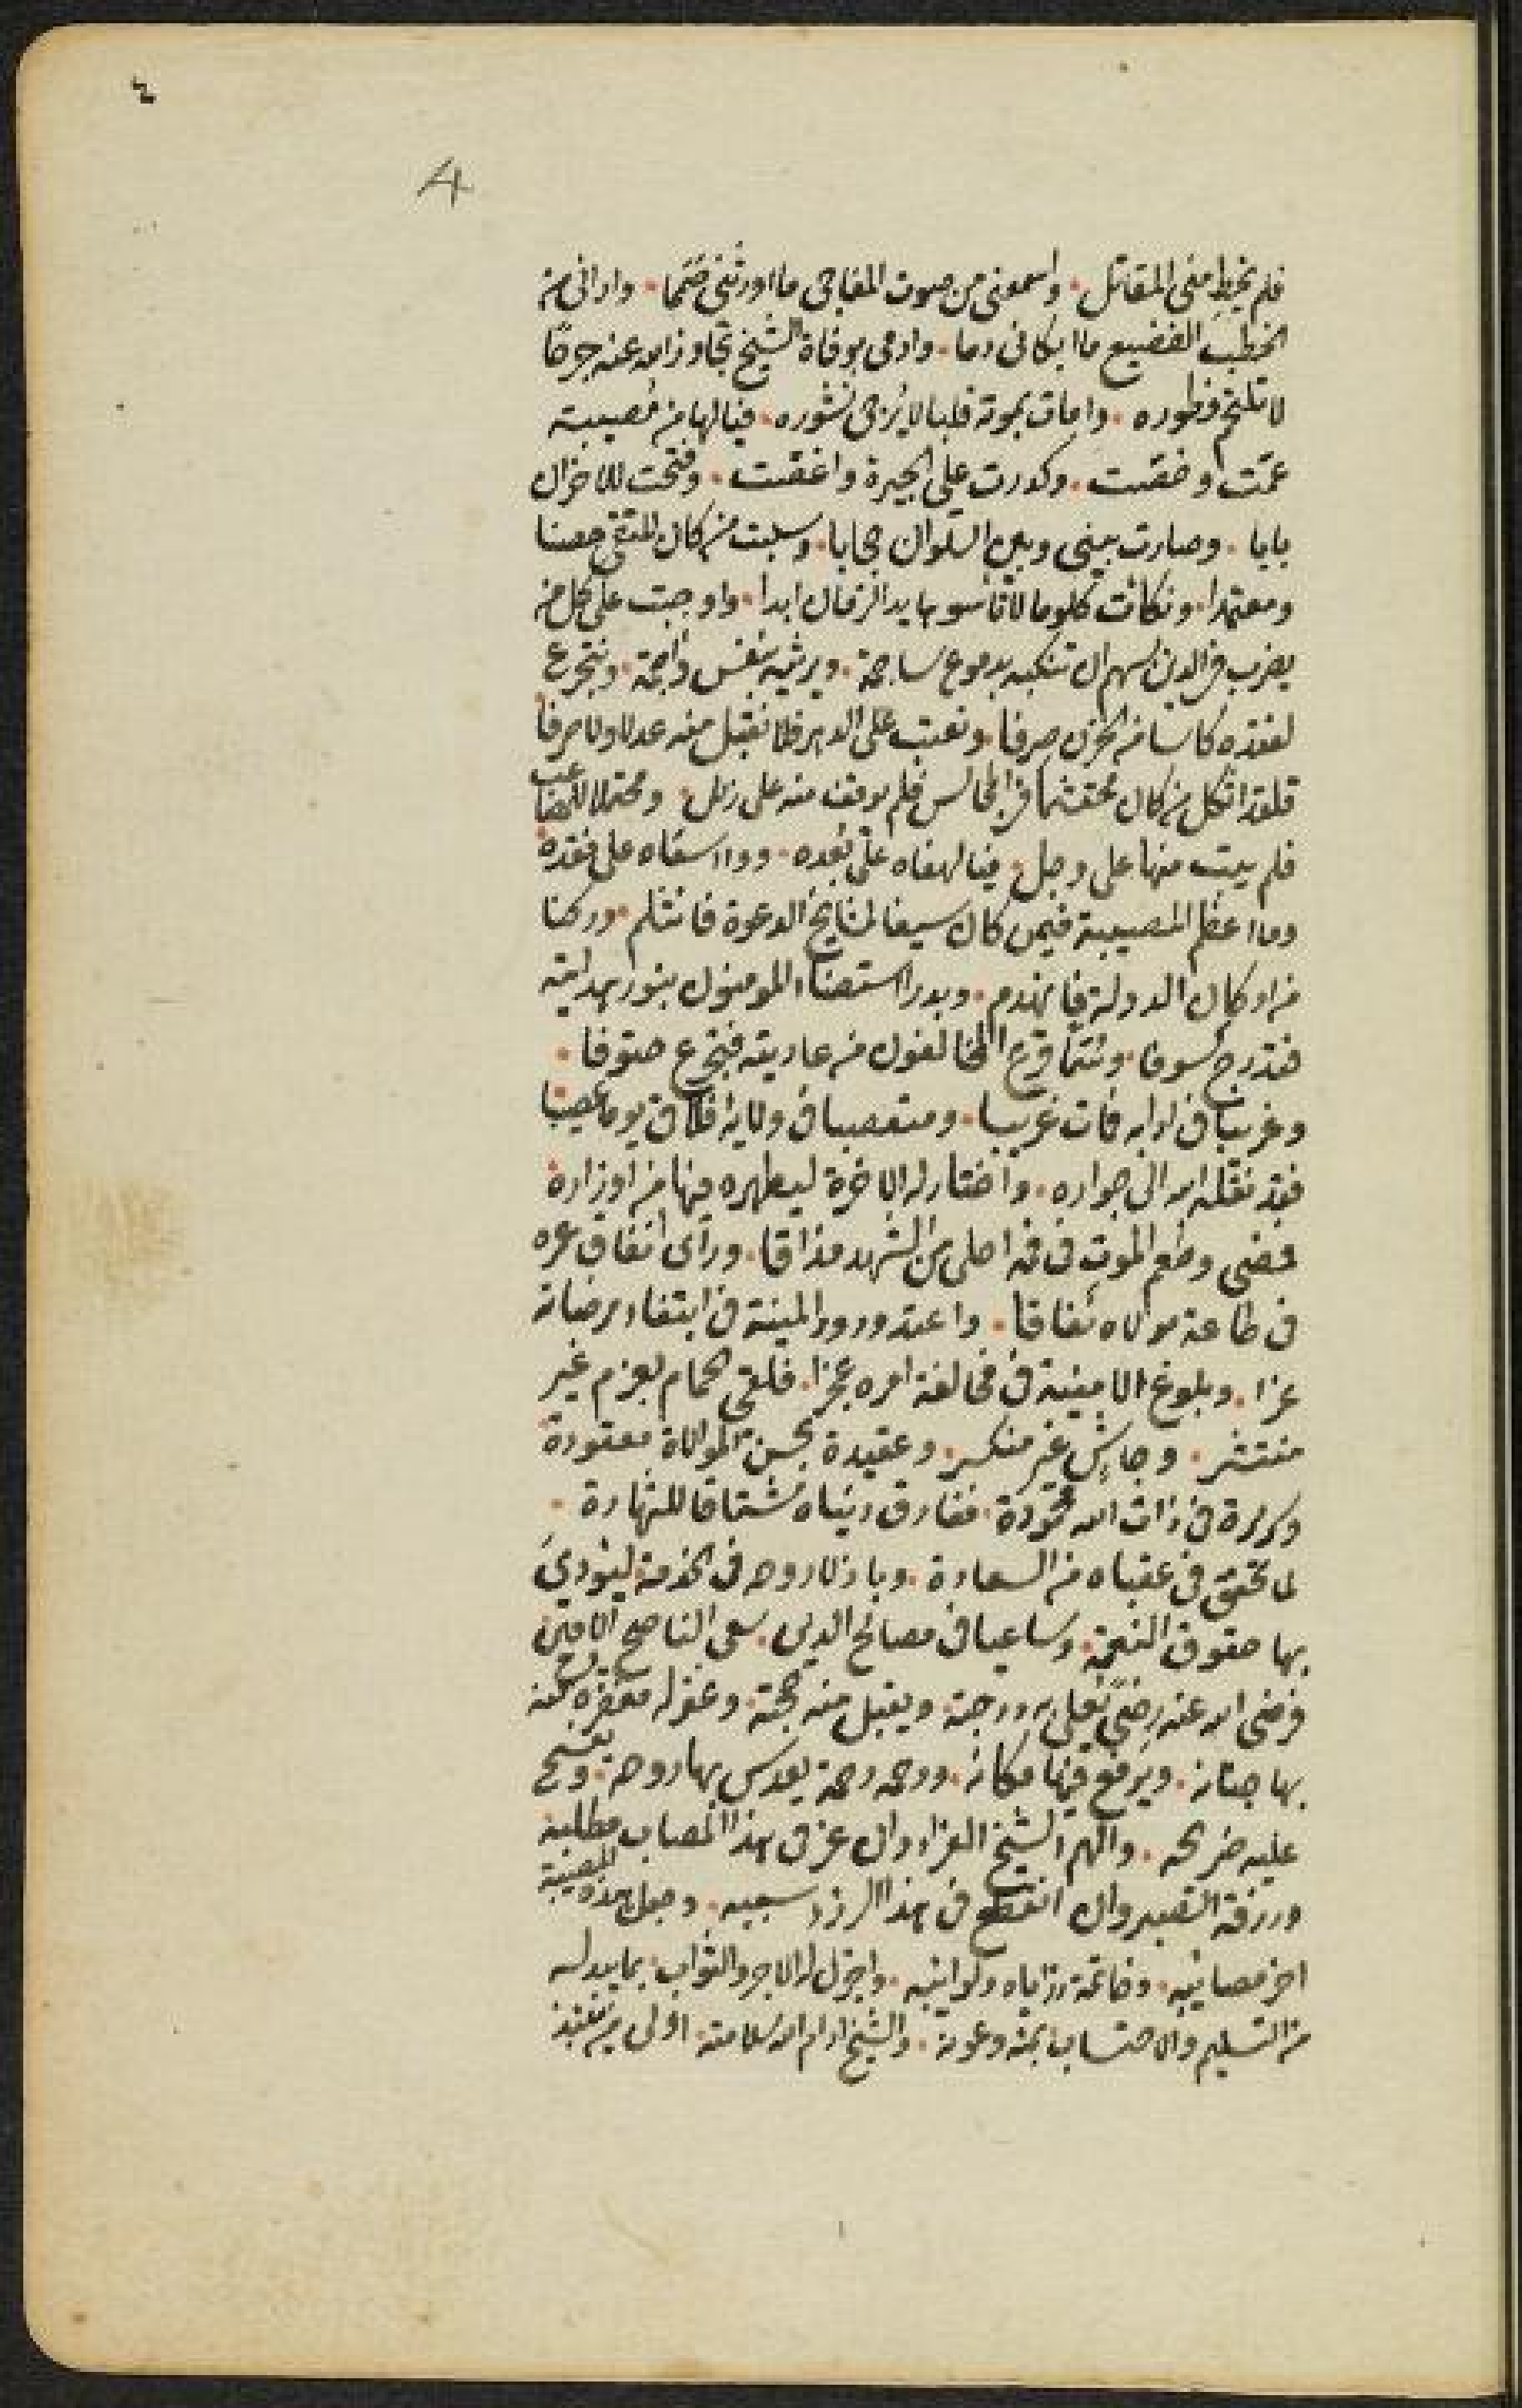 ٤
4
فلم يخط منى المقاتل . واسمعنى من صوت المفاجى ما اورثنى صمما . وارانى من
الخطب الفضيع ما ابكانى دما . وادمى بوفاة الشيخ تجاوز الله عنه جرحًا
لا تلتحم فطوره . وامات بموته قلبا لا يُرجى نشوره . فيا لها من مُصيبة
عمّت وخصّت . وكدرت على الجيرة واغصّت . وفتحت للاحزان
بابا . وصارت بينى وبين السلوان حجابا . وسلبت من كان للتقى حصنا
ومعتمدا . ونكأت كلوما لا تأسوها يد الزمان ابدا . واوجبت على كل من
يضرب فى الدين بسهم ان تبكيه بدموع ساجمة . ويرثيه بنفس واجمة . ونتجرع
لفقده كاسا من الحزن صرفا . ونعتب على الدهر فلا نقبل منه عدلا ولا صرفا
فلقد اثكل من كان محتشما فى المجالس فلم يوقف منه على زلل . ومحتملا للمصاعب
فلم يبت منها على وجل . فيا لهفاه على بُعده . ووا اسفاه على فقده
وما اعظم المصيبة فيمن كان سيفا لمشايخ الدعوة فانثلم . وركنا
من اركان الدولة فانهدم . وبدرا استضاء المومنون بنور هدايته
فتدرج كسوفا . وسمّا قرع المخالفون من عاديته فتجرع حتوفا .
وغريبا فى ادابه فمات غريبا . ومتعصبا فى ولايه افلاقى يوما عصيبا
فقد نقله الله الى جواره . واختار له الاخرة ليطهره فيها من اوزاره
فمضى وطعم الموت فى فمه احلى من الشهد مذاقا . ورأى انفاق عمره
فى طاعة مولاه نفاقا . واعتد ورود المنية فى ابتغاء مرضاته
عزا . وبلوغ الامنية فى مخالفة امره عجزا . فلقى الحمام بعزم غير
منتشر . وجاش غير منكسر . وعقيدة بحسن الموالاة معقودة
وسريرة فى ذات الله محمودة . ففارق دنياه مشتاقا للشهادة .
لما تحقق فى عقباه من السعادة . وباذلا روحه فى الخدمة ليؤدى
بها حقوق النعمة . وساعيا فى مصالح الدين . سعى الناصح الامين
فرضى الله عنه رضًى يُعلى به درجته . ويقبل منه حجته . وغفر له مغفرة يُسكنه
بها جنانه . ويرفع فيها مكانه . ورحمه رحمة يقدس بها روحه . ويفسح
عليه ضريحه . والهم الشيخ العزاء وان عز فى هذا المصاب مطلبه
ورزقه الصبر وان انقطع فى هذا الرزء سببه . وجعل هذه المصيبة
اخر مصائبه . وخاتمة رزاياه ونوائبه . واجزل له الاجر والثواب . بما يبدله
من التسليم والاحتساب بمنه وعونه . والشيخ ادام الله سلامته اولى من تنفذ